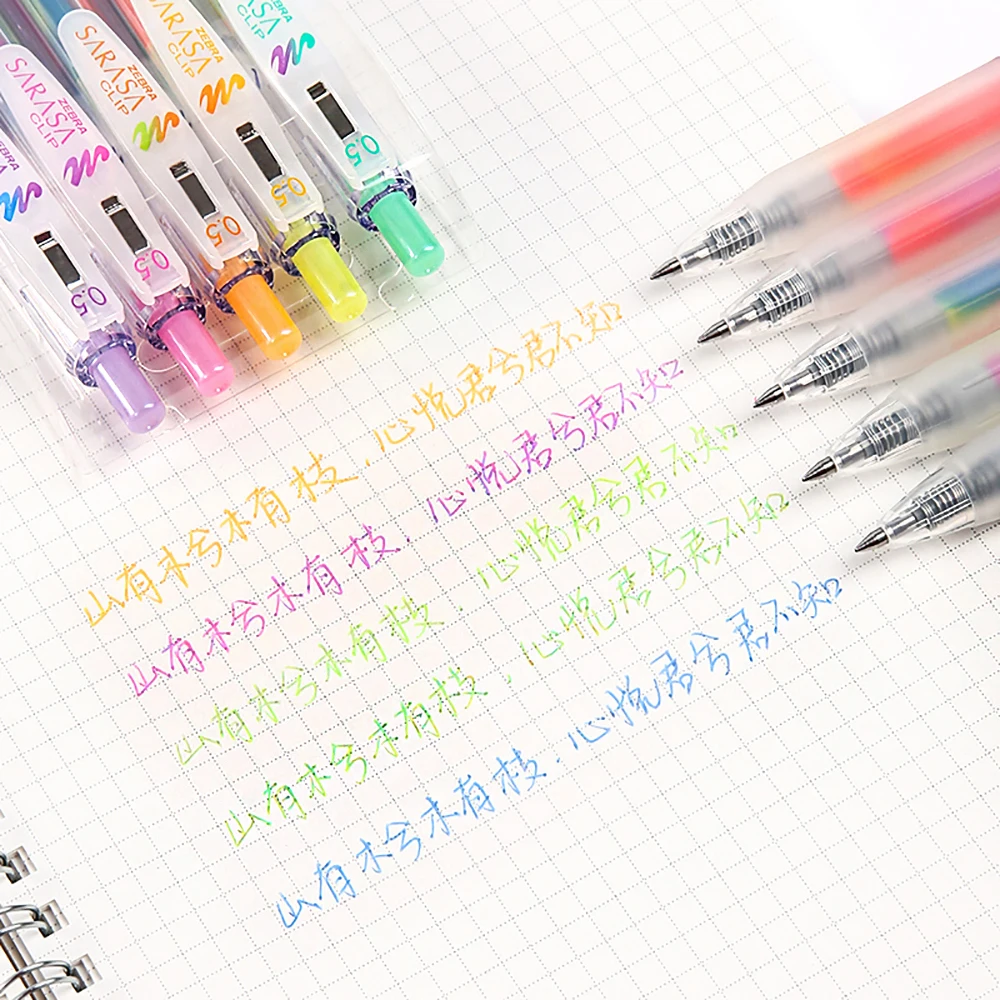 ZEBRA
SARASA
CLIP
0.5
ZEBRA
SARASA
CLIP
0.5
ZEBRA
SARASA
CLIP
0.5
ZEBRA
SARASA
CLIP
0.5
ZEBRA
0.5
山有木兮木有枝,心悦君兮君不知
山有木兮木有枝,心悦君兮君不知
山有木兮木有枝,心悦君兮君不知
山有木兮木有枝,心悦君兮君不知
山有木兮木有枝,心悦君兮君不知